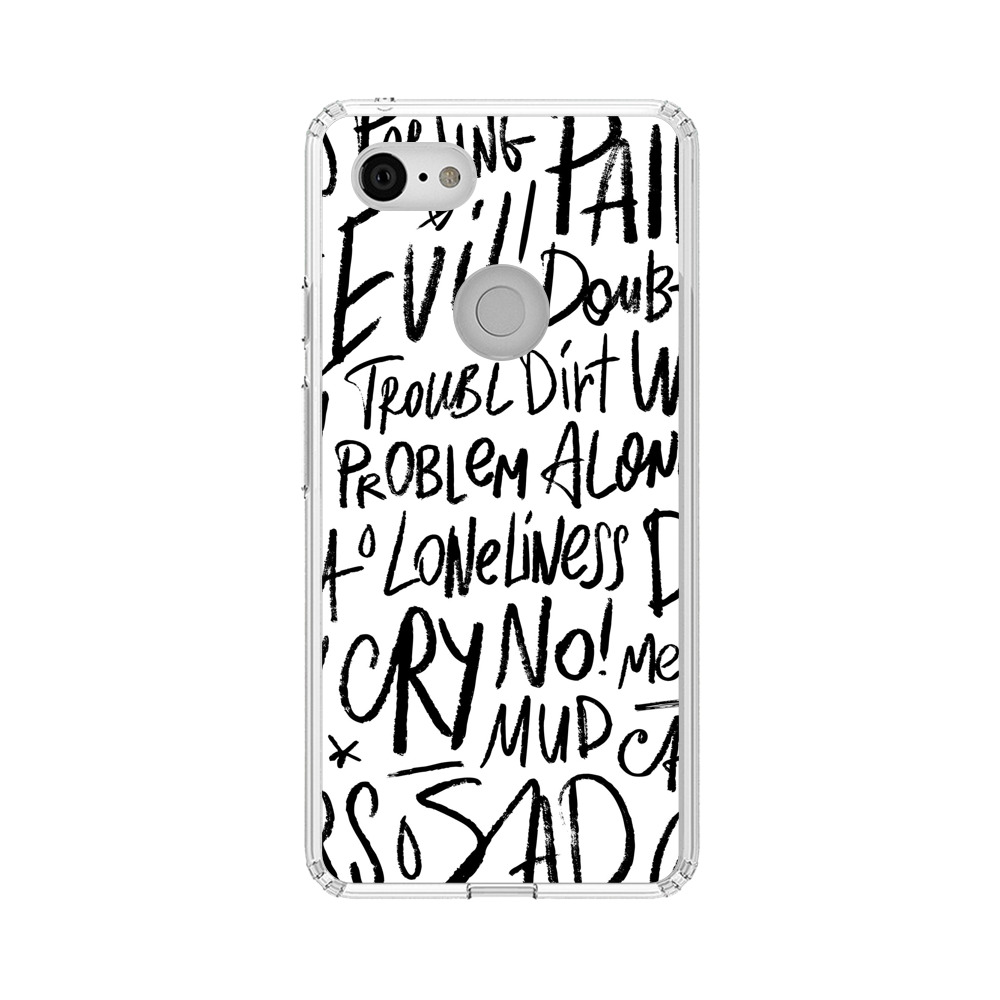 PAI
Evil!
Doub
TROUBL Dirt W
PROBLEM ALON
LONELINESS D
CRY NO! Me
MUD CA
RS SAD